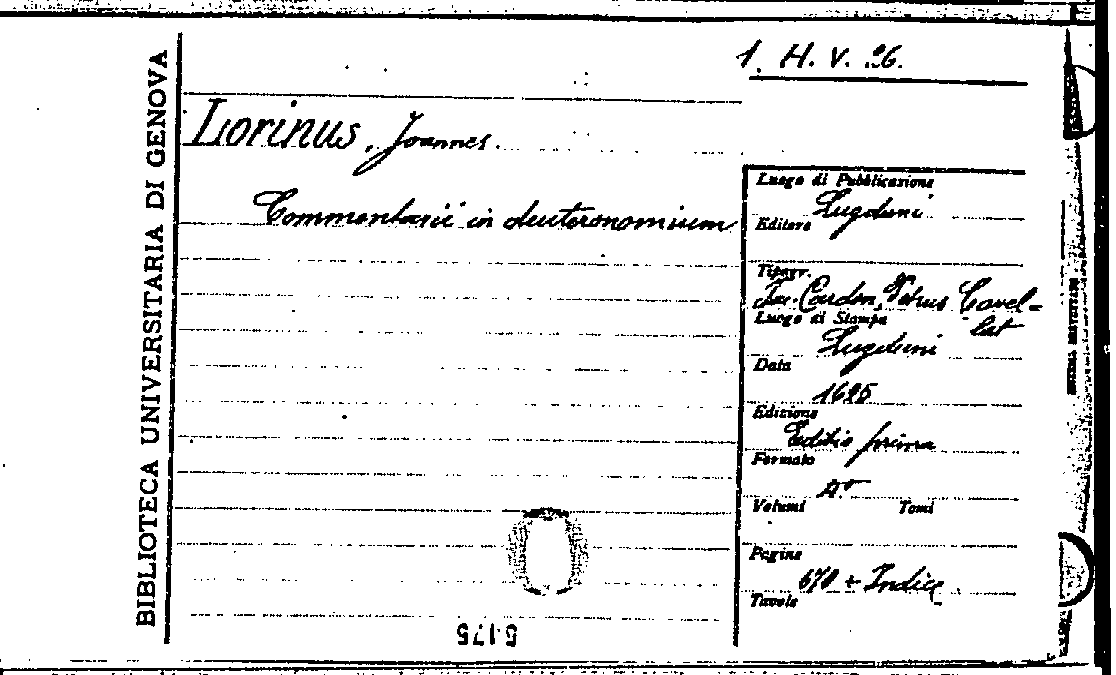 BIBLIOTECA UNIVERSITARIA DI GENOVA
1. H. V. 26.
Lorinus, Joannes.
Commentarii in deuteronomium
Luogo di Pubblicazione
Lugduni
Editore
Tipogr.
Jac. Cardon, Petrus Cavel=
lat
Luogo di Stampa
Lugduni
Data
1625
Edizione
Editio prima
Formato
Volumi Tomi
Pagine
678 + Indice
Tavole